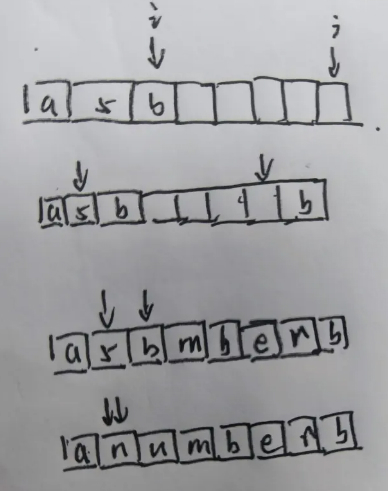 i j
a 5 b
a 5 b b
a 5 b m b e r b
a n u m b e r b